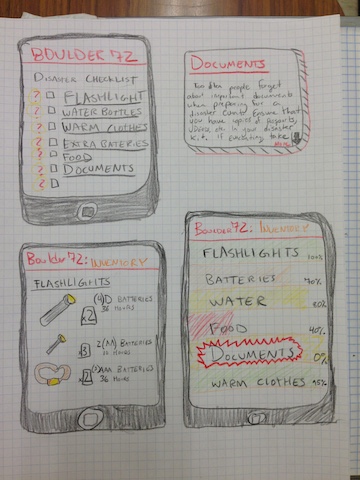 BOULDER 72
DISASTER CHECKLIST
? FLASHLIGHT
? WATER BOTTLES
? WARM CLOTHES
? EXTRA BATERIES
? FOOD
? DOCUMENTS
?
DOCUMENTS
Too often people forget
about important documents
when preparing for a
disaster event. Ensure that
you have copies of passports,
etc. in your disaster
kit. if everything
Boulder 72: INVENTORY
FLASHLIGHTS
x2 (4)D BATTERIES
36 HOURS
x3 2(AA) BATTERIES
10 HOURS
x2 (3)AAA BATTERIES
36 HOURS
Boulder 72: INVENTORY
FLASHLIGHTS 100%
BATTERIES 70%
WATER 80%
FOOD 40%
DOCUMENTS 0%
WARM CLOTHES 95%